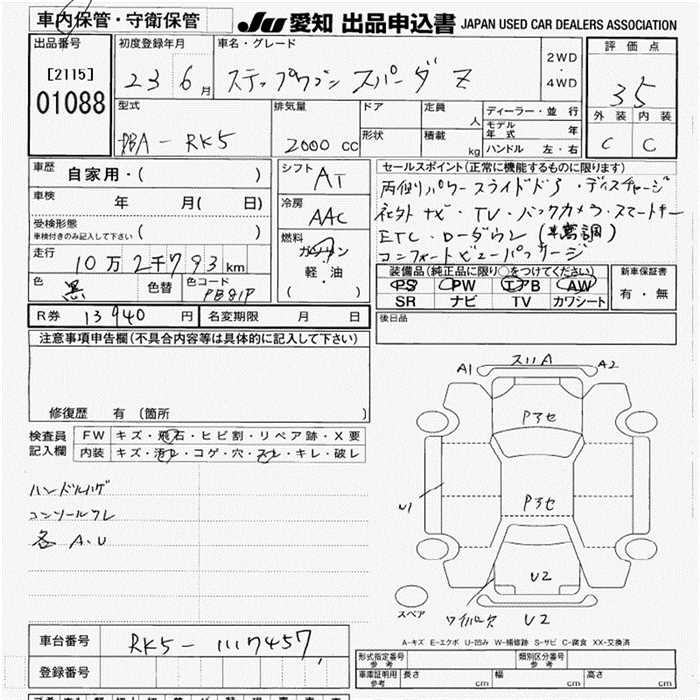 車内保管・守衛保管
JU 愛知 出品申込書 JAPAN USED CAR DEALERS ASSOCIATION
出品番号
[2115]
01088
初度登録年月
23 6月
車名・グレード
ステップワゴン スパーダ Z
2WD
・
4WD
評価点
3.5
外装 内装
C C
型式
DBA-RK5
排気量
2000 cc
ドア
形状
定員
人
積載
kg
ディーラー・並行
モデル年式 年
ハンドル 左・右
車歴 自家用・( )
車検 年 月( 日)
受検形態
車検付きのみ記入して下さい ( )
走行 10万2千793km
色 黒 色替 色コード PB81P
シフト AT
冷房 AAC
燃料
ガソリン
軽・油
( )
セールスポイント(正常に機能するものに限ります)
両側パワースライドドア・ディスチャージ
社外ナビ・TV・バックカメラ・スマートキー
ETC・ローダウン(車高調)
コンフォートビューパッケージ
装備品(純正品に限り○をつけてください)
PS PW エアB AW
SR ナビ TV カワシート
新車保証書
有・無
R券 13940円 名変期限 月 日
後日品
注意事項申告欄(不具合内容等は具体的に記入して下さい)
修復歴 有(箇所 )
検査員記入欄
FW キズ・飛石・ヒビ割・リペア跡・X要
内装 キズ・汚レ・コゲ・穴・スレ・キレ・破レ
ハンドルハゲ
コンソールワレ
各 A.U
A1 スリA A2
Pアセ
Pアセ
U1
U2
U2
スペア
A-キズ E-エクボ U-凹み W-補修跡 S-サビ C-腐食 XX-交換済
車台番号 RK5-1117457
登録番号
形式指定番号 参考
類別区分番号 参考
車庫証明用 参考 長さ cm 幅 cm 高さ cm